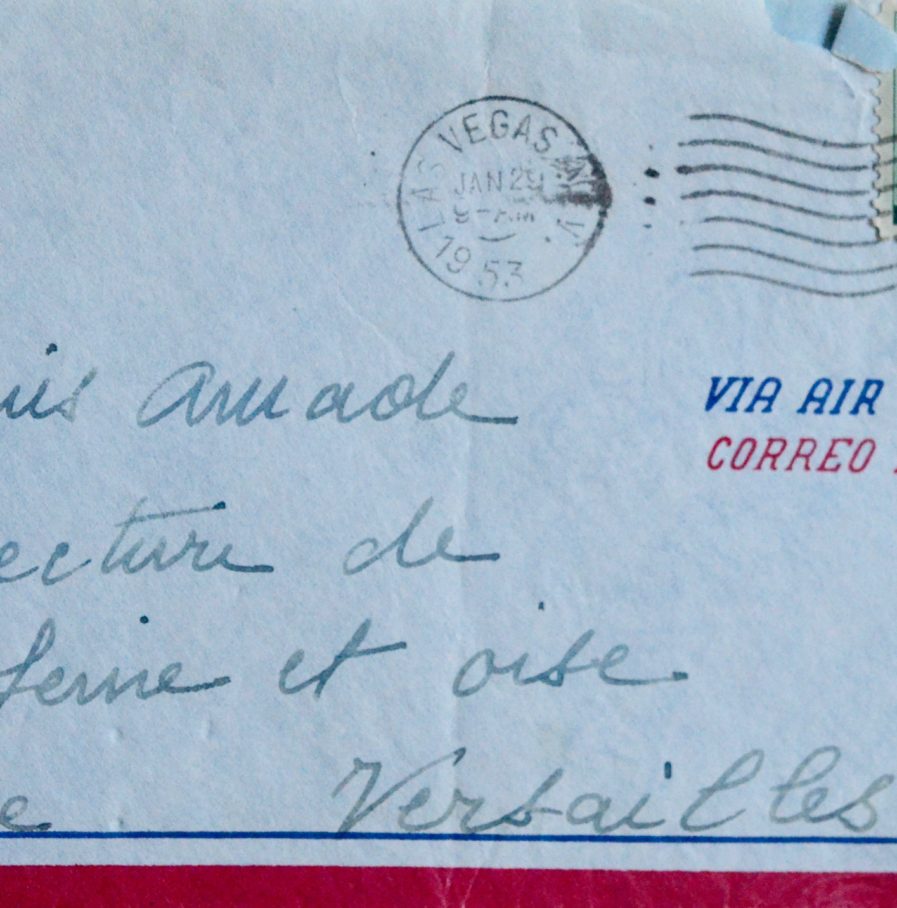 LAS VEGAS, NEV.
JAN 29
9-AM
1953
VIA AIR
CORREO
uis Amade
ecture de
Seine et oise
e Versailles